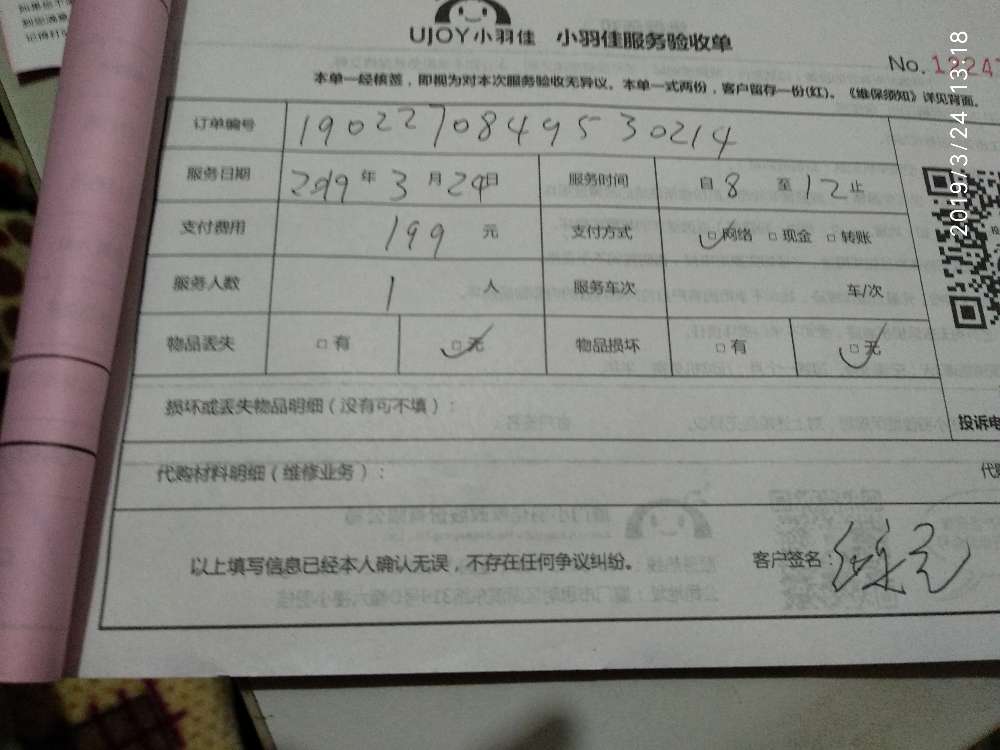 UJOY小羽佳 小羽佳服务验收单
No. 12247
本单一经核签，即视为对本次服务验收无异议。本单一式两份，客户留存一份(红)。《维保须知》详见背面。
订单编号 1902270849530214
服务日期 2019年3月24日 服务时间 自8至12止
支付费用 199元 支付方式 □网络 □现金 □转账
服务人数 1人 服务车次 车/次
物品丢失 □有 □无 物品损坏 □有 □无
损坏或丢失物品明细（没有可不填）：
投诉电
代购材料明细（维修业务）：
代购
以上填写信息已经本人确认无误，不存在任何争议纠纷。 客户签名：
2019/3/24 13:18